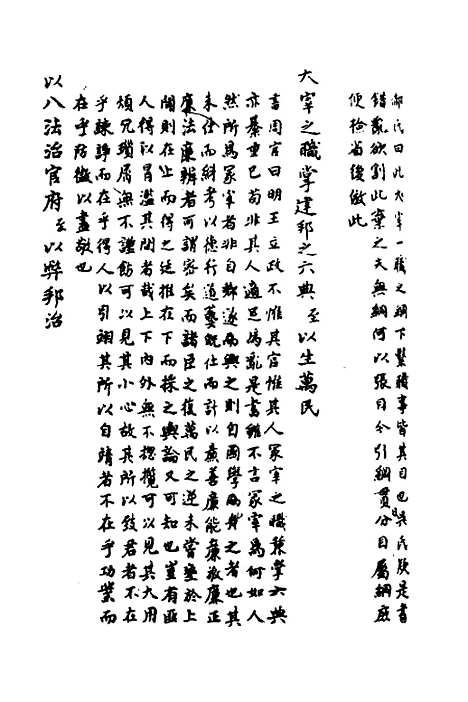 鄭氏曰此大宰一職之綱下繫職事皆其目也吳氏疑是書
錯亂欲割此棄之夫無綱何以張目今引綱貫分目屬綱庶
便檢省後倣此
大宰之職掌建邦之六典至以生萬民
書周官曰明王立政不惟其官惟其人冢宰之職兼掌六典
亦綦重已苟非其人適足為亂是書雖不言冢宰為何如人
然所為冢宰者非自鄉遂而興之則自國學而升之者也其
未仕而糾考以德行道藝既仕而計以廉善廉能廉敬廉正
廉法廉辨者可謂密矣而諸臣之復萬民之逆未嘗壅於上
聞則在上而得之廷推在下而採之輿論又可知也豈有匪
人得以冒濫其間者哉上下內外無不總攬可以見其大用
煩冗瑣屑無不謹飭可以見其小心故其所以致君者不在
乎諫諍而在乎得人以引翊其所以自靖者不在乎功業而
在乎防微以盡敬也
以八法治官府至以弊邦治